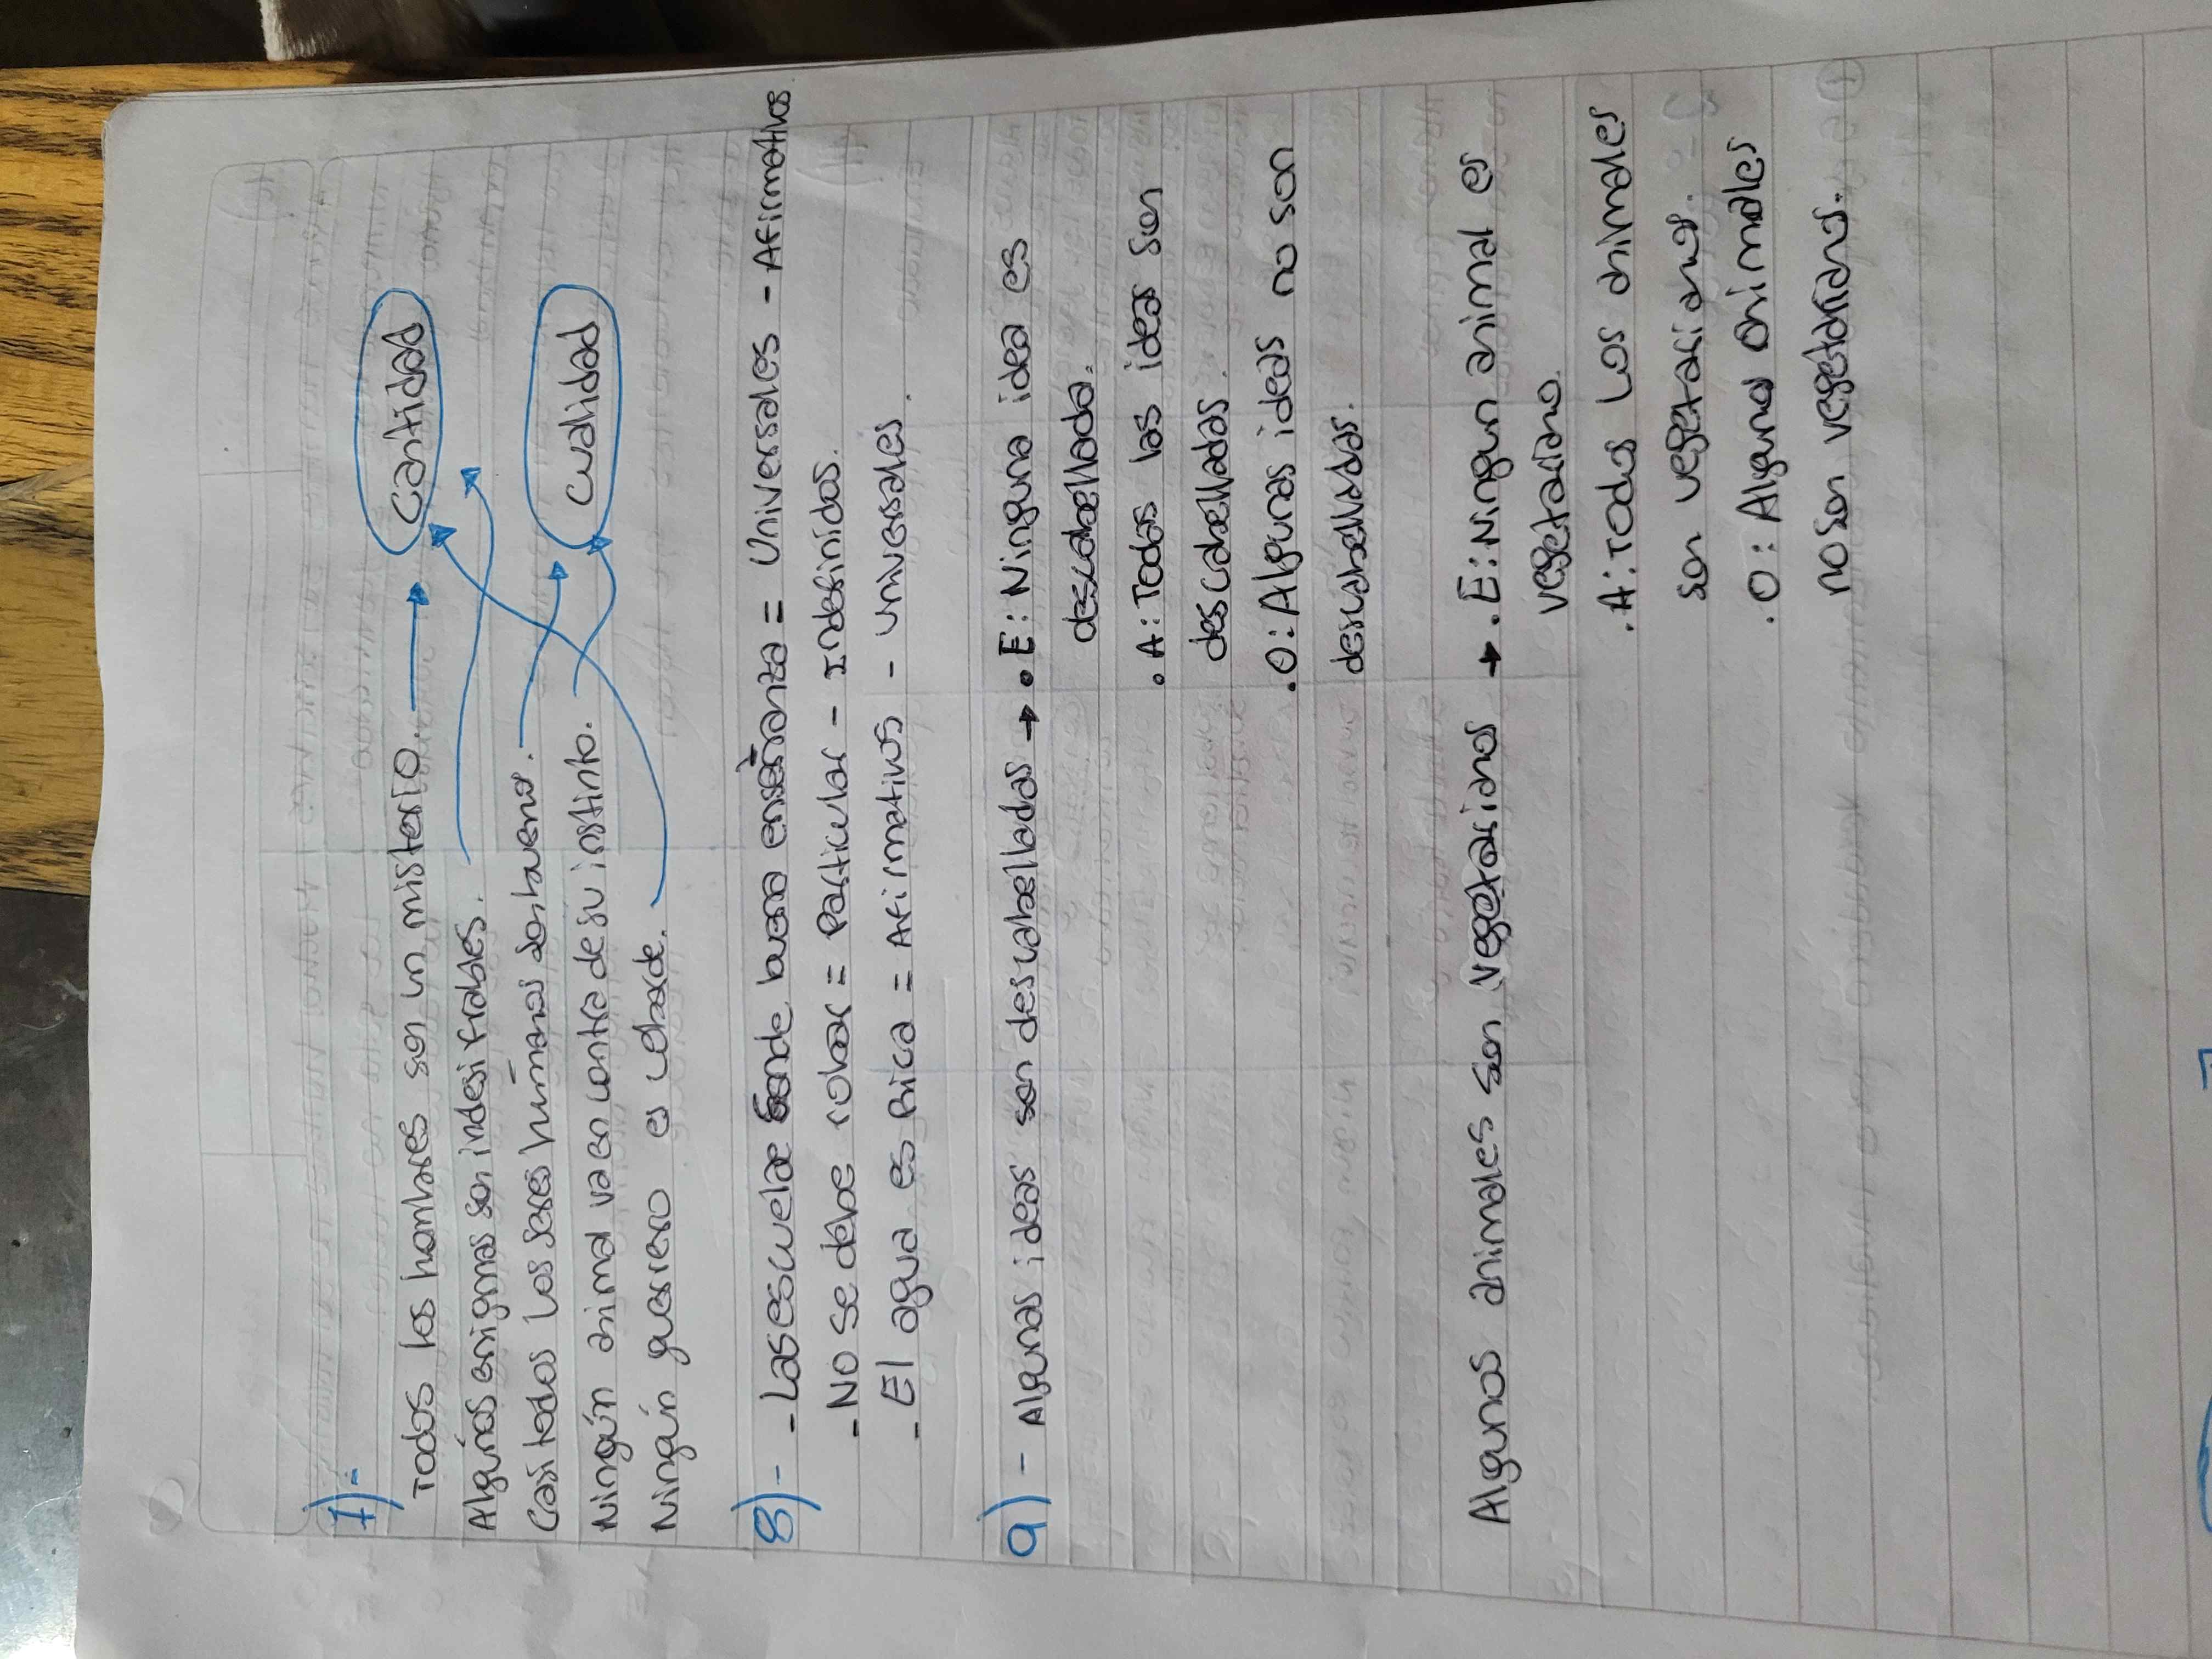 7)-
Todos los hombres son un misterio. → Cantidad
Algunos enigmas son indesifrables.
Casi todos los seres humanos son buenos. → Cualidad
Ningún animal va en contra de su instinto.
Ningún guerrero es cobarde.
8)- - Las escuelas son de buena enseñanza = Universales - Afirmativos
- No se debe robar = Particular - Indefinidos.
- El agua es Rica = Afirmativos - universales.
9)- Algunas ideas son descabelladas → • E: Ninguna idea es
descabellada.
• A: Todas las ideas son
descabelladas.
• O: Algunas ideas no son
descabelladas.
Algunos animales son vegetarianos → • E: Ningun animal es
vegetariano.
• A: Todos Los animales
son vegetarianos.
• O: Algunos animales
no son vegetarianos.